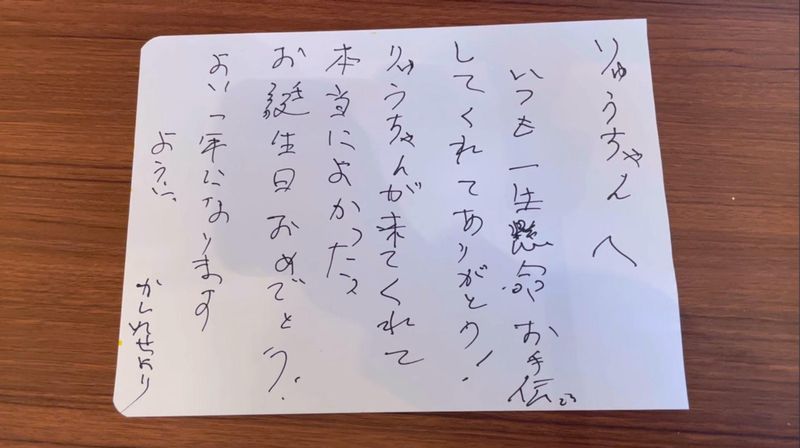 りゅうちゃんへ
いつも一生懸命お手伝い
してくれてありがとう!
りゅうちゃんが来てくれて
本当によかったョ
お誕生日おめでとう!
よい一年になります
ように、
より